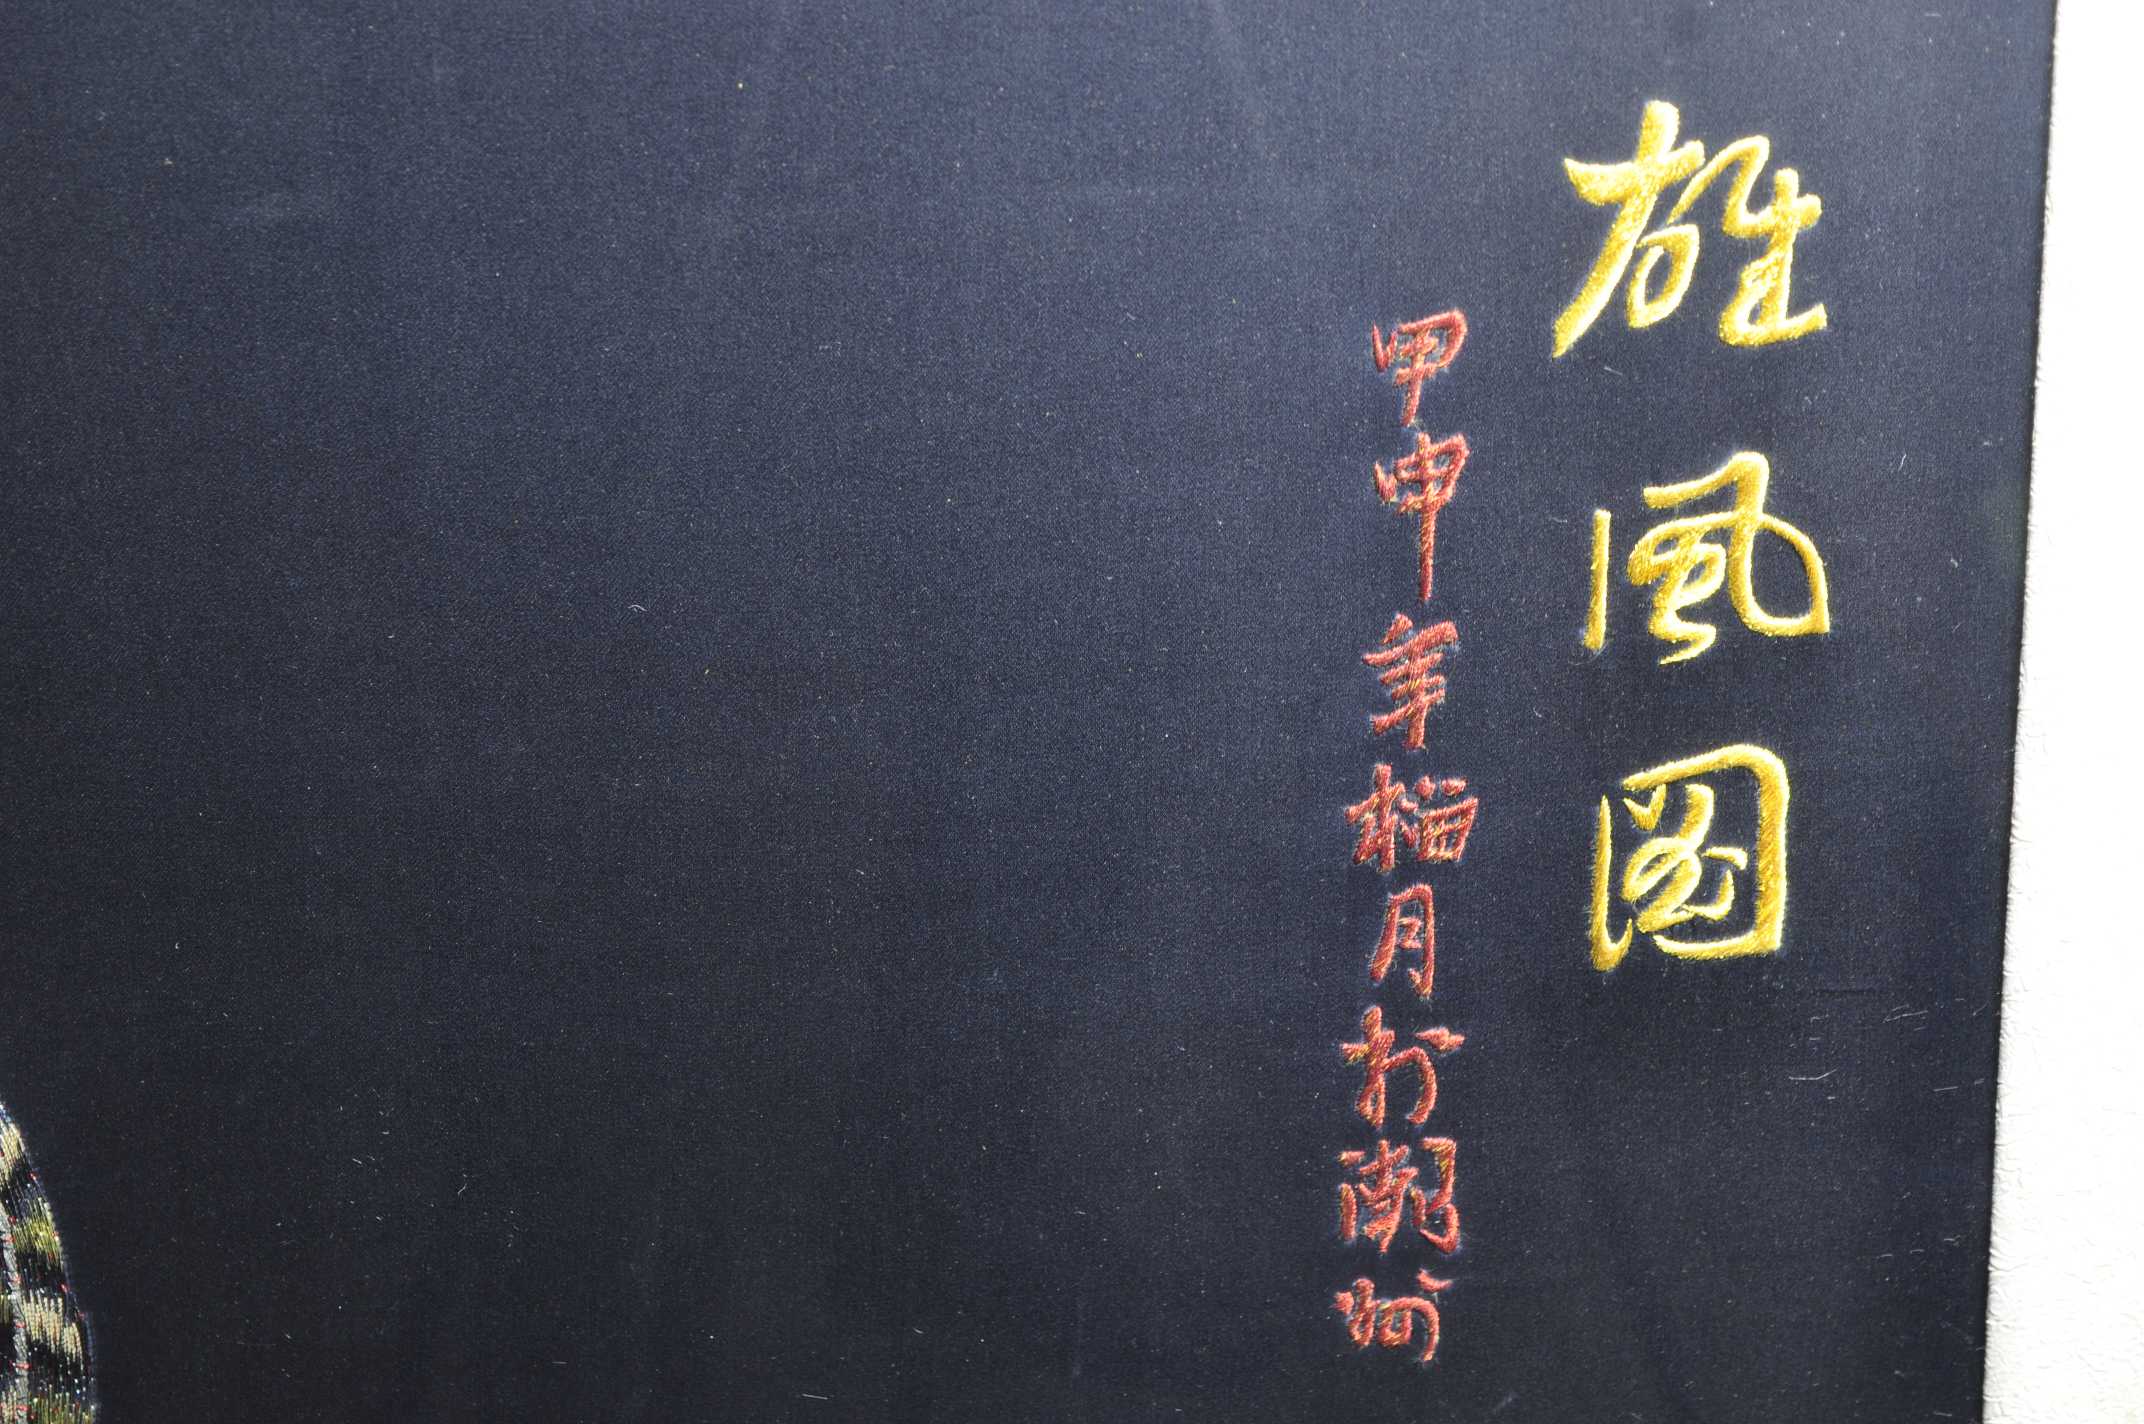 雄風图
甲申年榴月於潮州